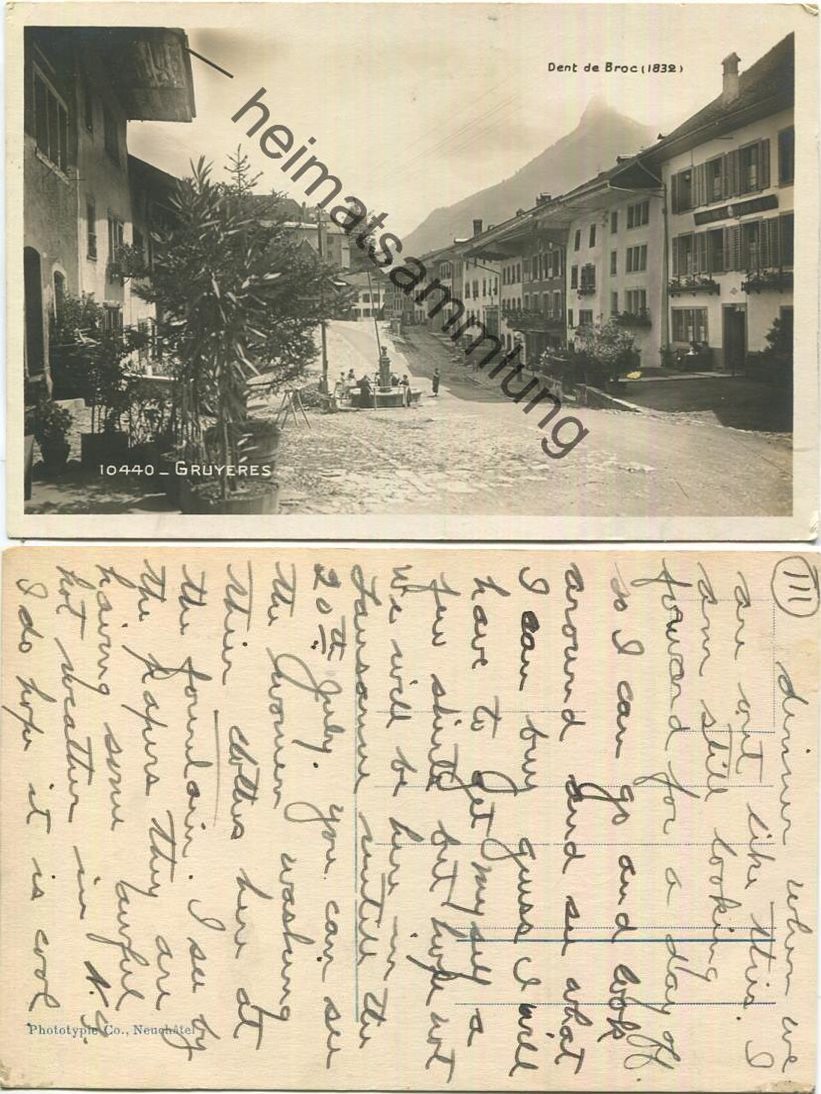 Dent de Broc (1832)
heimatsammlung
10440 _ GRUYERES
III
dinner when we
are out like this. I
am still looking
forward for a day off
so I can go and look
around and see what
I can buy guess I will
have to get myself a
few shirts but hope not
We will be here in
Lausanne untill the
20th July. you can see
the women washing
thier clothes here at
the fountain. I see by
the papers they are
having some awful
hot weather in N.Y.
I do hope it is cool
Phototypie Co., Neuchâtel